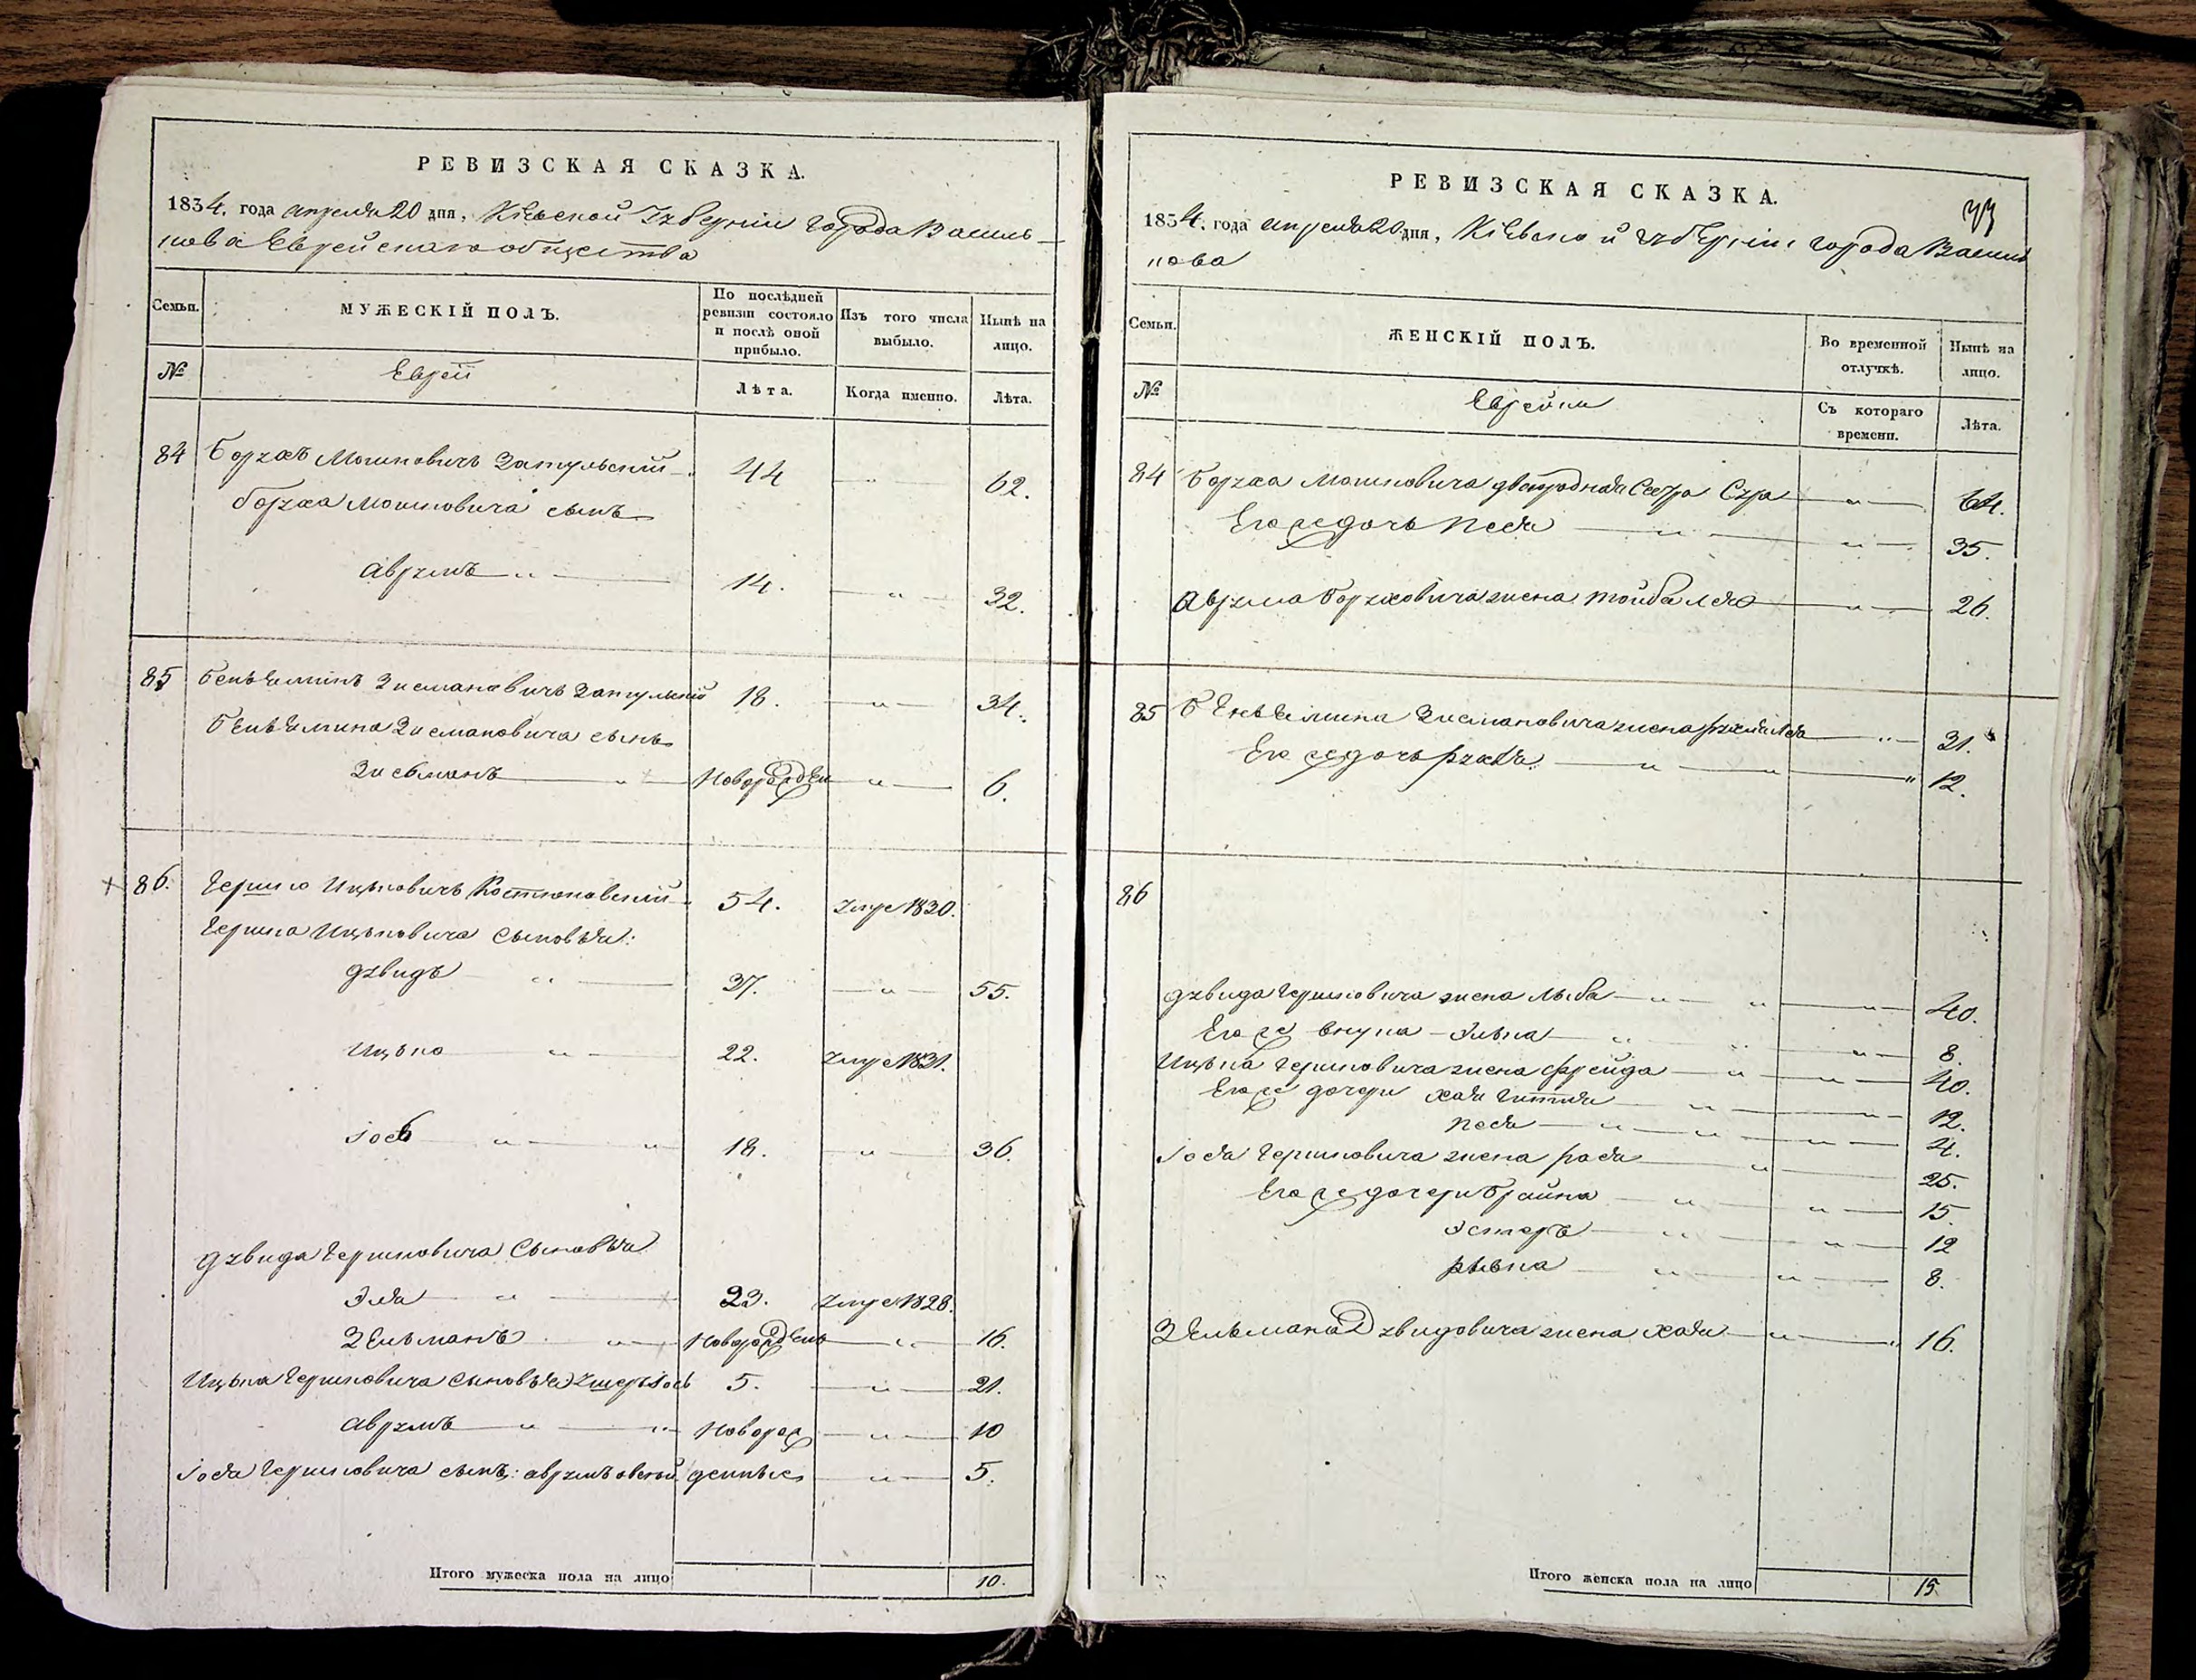 РЕВИЗСКАЯ СКАЗКА.
1834. года апреля 20 дня, Кіевской Губерніи города Василь-
кова Еврейскаго общества
Семьи.
МУЖЕСКІЙ ПОЛЪ.
По послѣдней ревизіи состояло и послѣ оной прибыло.
Изъ того числа выбыло.
Нынѣ на лицо.
№
Еврей
Лѣта.
Когда именно.
Лѣта.
84 Борухъ Мошковичъ Затульскій 44 62.
Боруха Мошковича сынъ
Аврумъ 14. 32.
85 Беньеминъ Зисмановичъ Затульскій 18. 34.
Беньемина Зисмановича сынъ
Зисьманъ Новорожден 6.
86. Гершко Ицьковичъ Костюковскій 54. умре 1830.
Гершка Ицьковича сыновья:
Дувидъ 37. 55.
Ицько 22. умре 1831.
Іось 18. 36.
Дувида Гершковича сыновья
Эля 23. умре 1828.
Зельманъ Новорожден 16.
Ицька Гершковича сыновья Ушеръ Іось 5. 21.
Аврумъ Новорож 10
Іося Гершковича сынъ: Аврумъ денные 5.
Итого мужеска пола на лицо 10.
РЕВИЗСКАЯ СКАЗКА.
1834. года апреля 20 дня, Кіевской губерніи города Василь
кова
Семьи.
ЖЕНСКІЙ ПОЛЪ.
Во временной отлучкѣ.
Нынѣ на лицо.
№
Еврейки
Съ котораго времени.
Лѣта.
84 Боруха Мошковича двоюродная сестра Сура 64.
Его же дочь Песя 35.
Аврума Боруховича жена Тойба Лея 26.
85 Беньемина Зисмановича жена Рухля Лея 31.
Его же дочь 12.
86
Дувида Гершковича жена Лыба 40.
Его же внука Элька 8.
Ицька Гершковича жена Фрейда 40.
Его же дочери Хая Гитля 12.
Песя 4.
Іося Гершковича жена Рося 25.
Его же дочери Брайна 15.
Эстеръ 12
Рывка 8.
Зельмана Дувидовича жена Хая 16.
Итого женска пола на лицо 15